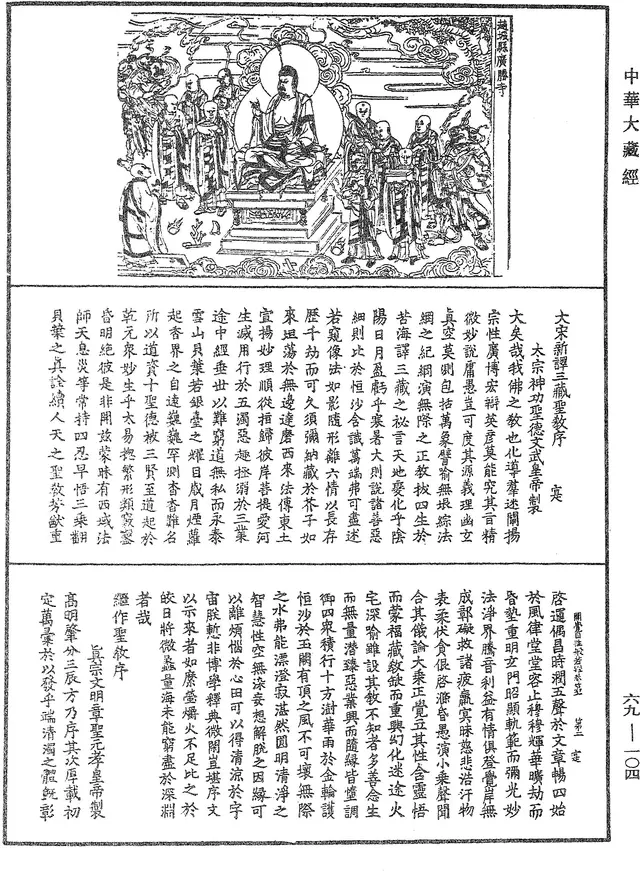 中華大藏經
趙城縣廣勝寺
大宋新譯三藏聖教序
太宗神功聖德文武皇帝製
大矣哉我佛之教也化導羣迷闡揚
宗性廣博宏辯英彥莫能究其旨精
微妙說庸愚豈可度其源義理幽玄
真空莫測包括萬象譬喻無垠綜法
網之紀綱演無際之正教拔四生於
苦海譯三藏之秘言天地變化乎陰
陽日月盈虧乎寒暑大則說諸善惡
細則比於恒沙含識萬端弗可盡述
若窺像法如影隨形離六情以長存
歷千劫而可久須彌納藏於芥子如
來坦蕩於無邊達磨西來法傳東土
宣揚妙理順從指歸彼岸菩提愛河
生滅用行於五濁惡趣拯溺於三業
途中經垂世以難窮道無私而永泰
雪山貝葉若銀臺之耀目歲月煙蘿
起香界之自遠巍巍罕測杳杳難名
所以道資十聖德被三賢至道起於
乾元衆妙生乎太易摠繁形類竅鑿
昏明絕彼是非開茲蒙昧有西域法
師天息災等常持四忍早悟三乘翻
貝葉之真詮續人天之聖教芳猷重
啓運偶昌時潤五聲於文章暢四始
於風律堂堂容止穆穆輝華曠劫而
昏墊重明玄門昭顯軌範而彌光妙
法淨界騰音利益有情俱登覺岸無
成郭礙救諸疲羸冥昧慈悲浩汗物
表柔伏貪很啓滌昏愚演小乘聲聞
合其儀論大乘正覺立其性含靈悟
而蒙福藏教缺而重興幻化迷途火
宅深喻雖設其教不知者多善念生
而無量潛臻惡業興而隨緣皆墮調
御四衆積行十方澍華雨於金輪護
恒沙於玉闕有頂之風不可壞無際
之水弗能漂澄寂湛然圓明清淨之
智慧性空無染妄想解脫之因緣可
以離煩惱於心田可以得清涼於宇
宙朕慙非博學釋典微閑豈堪序文
以示來者如縻盛爝火不足比之於
皎日將微蠡量海未能窮盡於深淵
者哉
繼作聖教序
真宗文明章聖元孝皇帝製
高明肇分三辰方乃序其次厚載初
定萬彙於以發乎端清濁之體旣彰
六九—一〇四